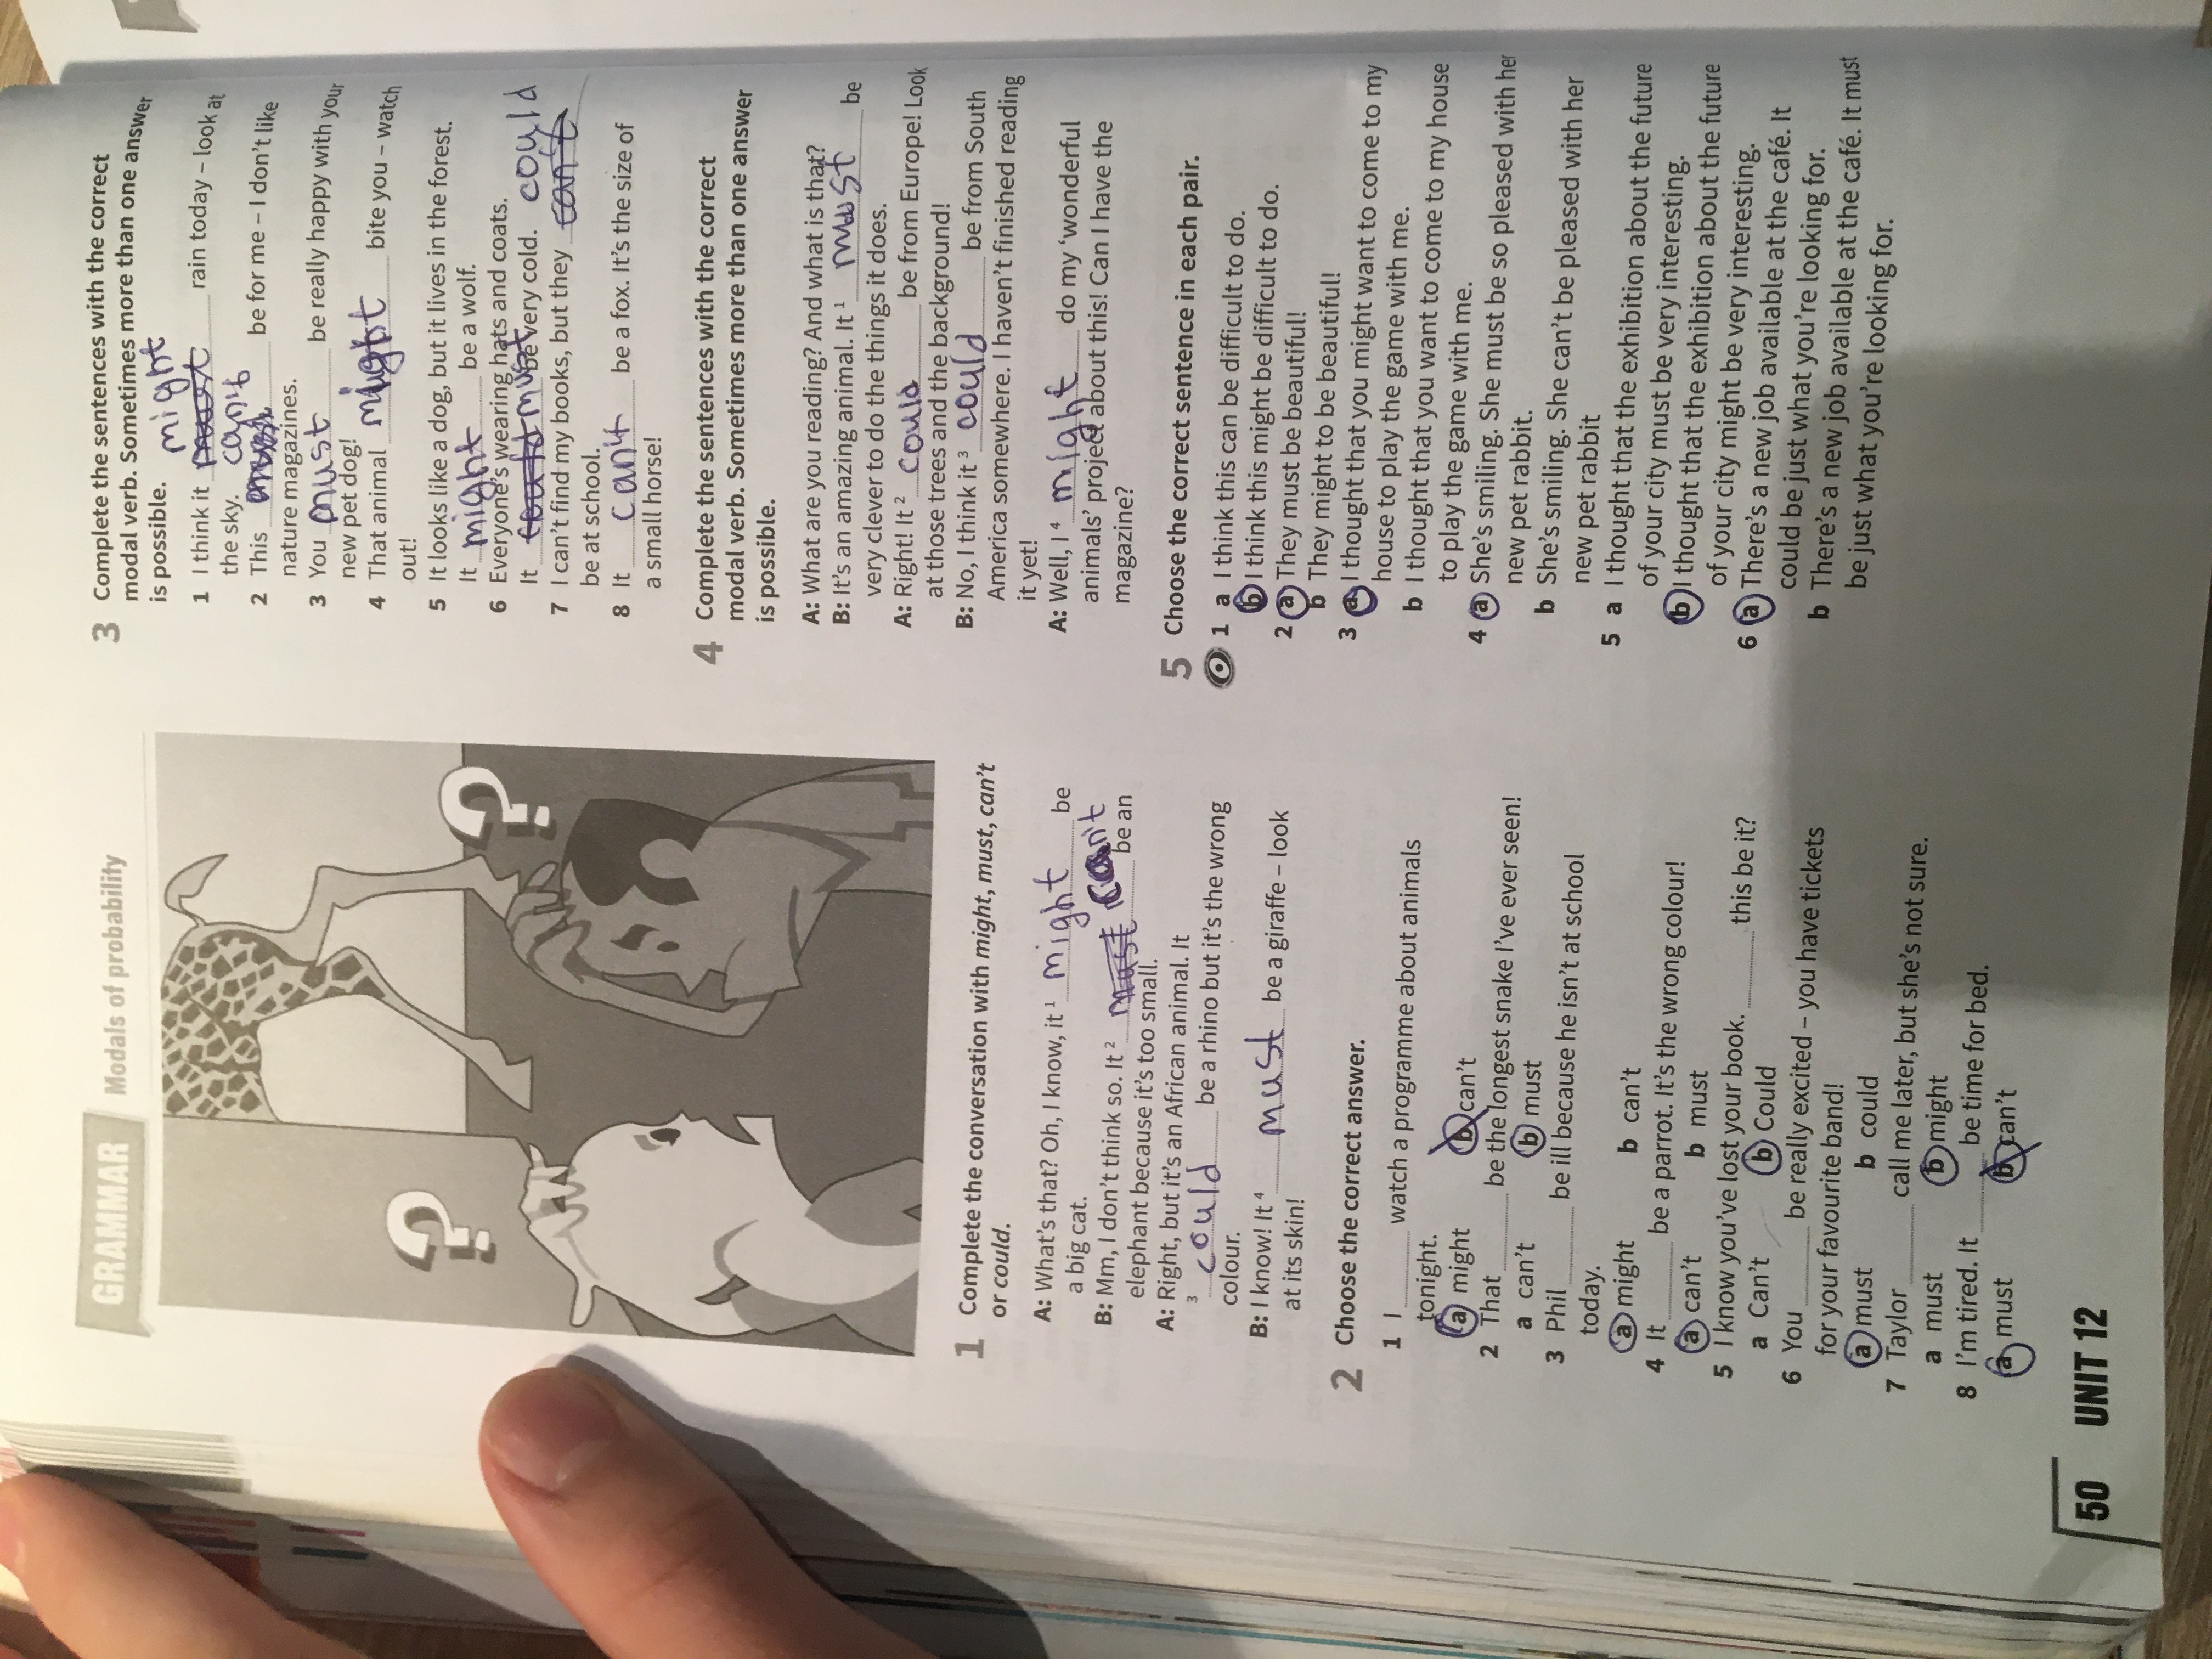 GRAMMAR Modals of probability
?
?
1 Complete the conversation with might, must, can't
or could.
A: What's that? Oh, I know, it 1 might be
a big cat.
B: Mm, I don't think so. It 2 must can't be an
elephant because it's too small.
A: Right, but it's an African animal. It
3 could be a rhino but it's the wrong
colour.
B: I know! It 4 must be a giraffe – look
at its skin!
2 Choose the correct answer.
1 I ______ watch a programme about animals
tonight.
a might b can't
2 That ______ be the longest snake I've ever seen!
a can't b must
3 Phil ______ be ill because he isn't at school
today.
a might b can't
4 It ______ be a parrot. It's the wrong colour!
a can't b must
5 I know you've lost your book. ______ this be it?
a Can't b Could
6 You ______ be really excited – you have tickets
for your favourite band!
a must b could
7 Taylor ______ call me later, but she's not sure.
a must b might
8 I'm tired. It ______ be time for bed.
a must b can't
50 UNIT 12
3 Complete the sentences with the correct
modal verb. Sometimes more than one answer
is possible.
might
1 I think it must rain today – look at
the sky. can't
2 This be for me – I don't like
nature magazines.
3 You must be really happy with your
new pet dog!
4 That animal might bite you – watch
out!
5 It looks like a dog, but it lives in the forest.
It might be a wolf.
6 Everyone's wearing hats and coats.
It could must be very cold. could
7 I can't find my books, but they can't
be at school.
8 It can't be a fox. It's the size of
a small horse!
4 Complete the sentences with the correct
modal verb. Sometimes more than one answer
is possible.
A: What are you reading? And what is that?
B: It's an amazing animal. It 1 must be
very clever to do the things it does.
A: Right! It 2 could be from Europe! Look
at those trees and the background!
B: No, I think it 3 could be from South
America somewhere. I haven't finished reading
it yet!
A: Well, I 4 might do my 'wonderful
animals' project about this! Can I have the
magazine?
5 Choose the correct sentence in each pair.
1 a I think this can be difficult to do.
b I think this might be difficult to do.
2 a They must be beautiful!
b They might to be beautiful!
3 a I thought that you might want to come to my
house to play the game with me.
b I thought that you want to come to my house
to play the game with me.
4 a She's smiling. She must be so pleased with her
new pet rabbit.
b She's smiling. She can't be pleased with her
new pet rabbit
5 a I thought that the exhibition about the future
of your city must be very interesting.
b I thought that the exhibition about the future
of your city might be very interesting.
6 a There's a new job available at the café. It
could be just what you're looking for.
b There's a new job available at the café. It must
be just what you're looking for.